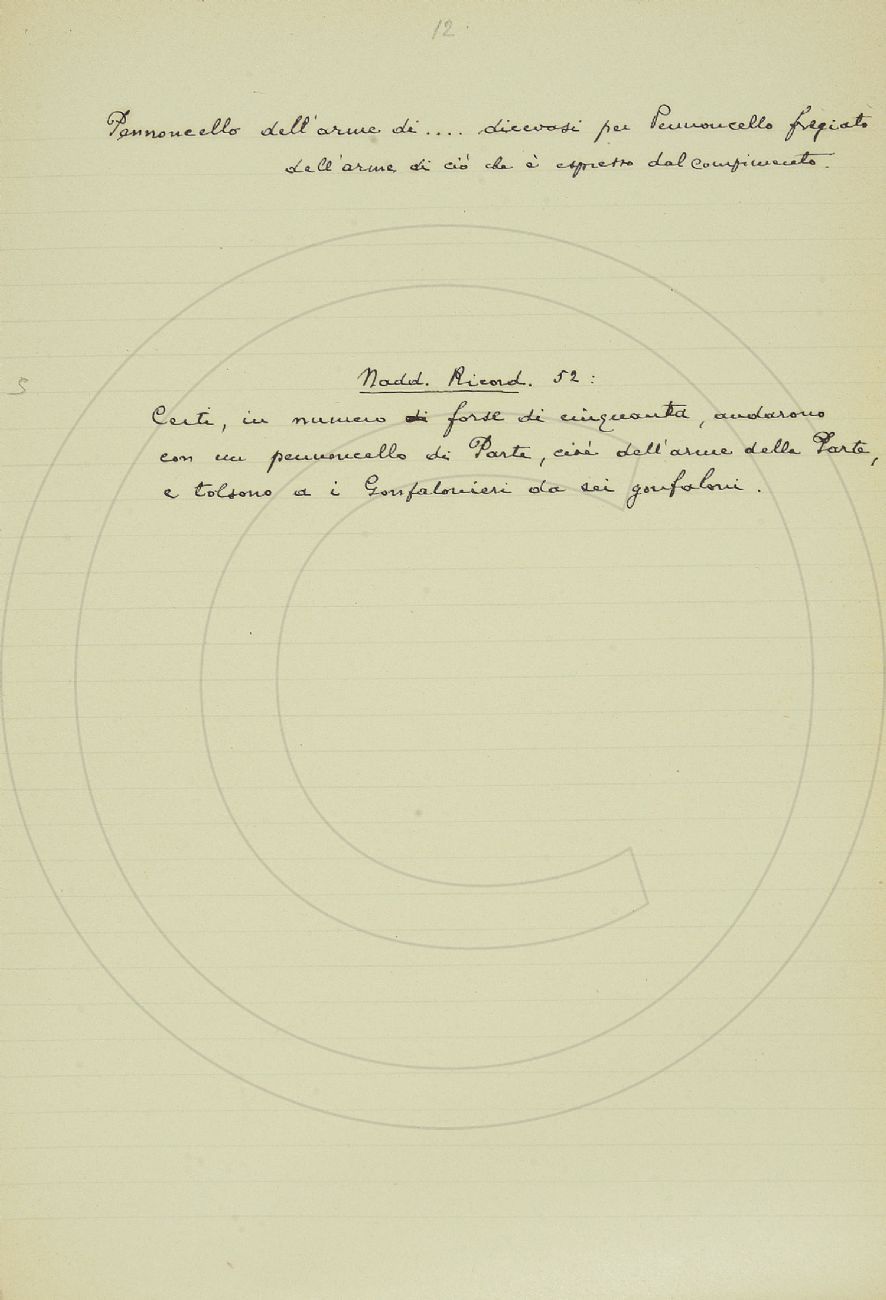 12
Pennoncello dell'arme di .... dicevasi per Pennoncello fregiato
dell'arme di ciò che è espresso dal compimento.
5
Nadd. Ricord. 52:
Certi, in numero di forse di cinquanta, andarono
con un pennoncello di Parte, cioè dell'arme della Parte,
e tolsono a i Gonfalonieri da sei gonfaloni.